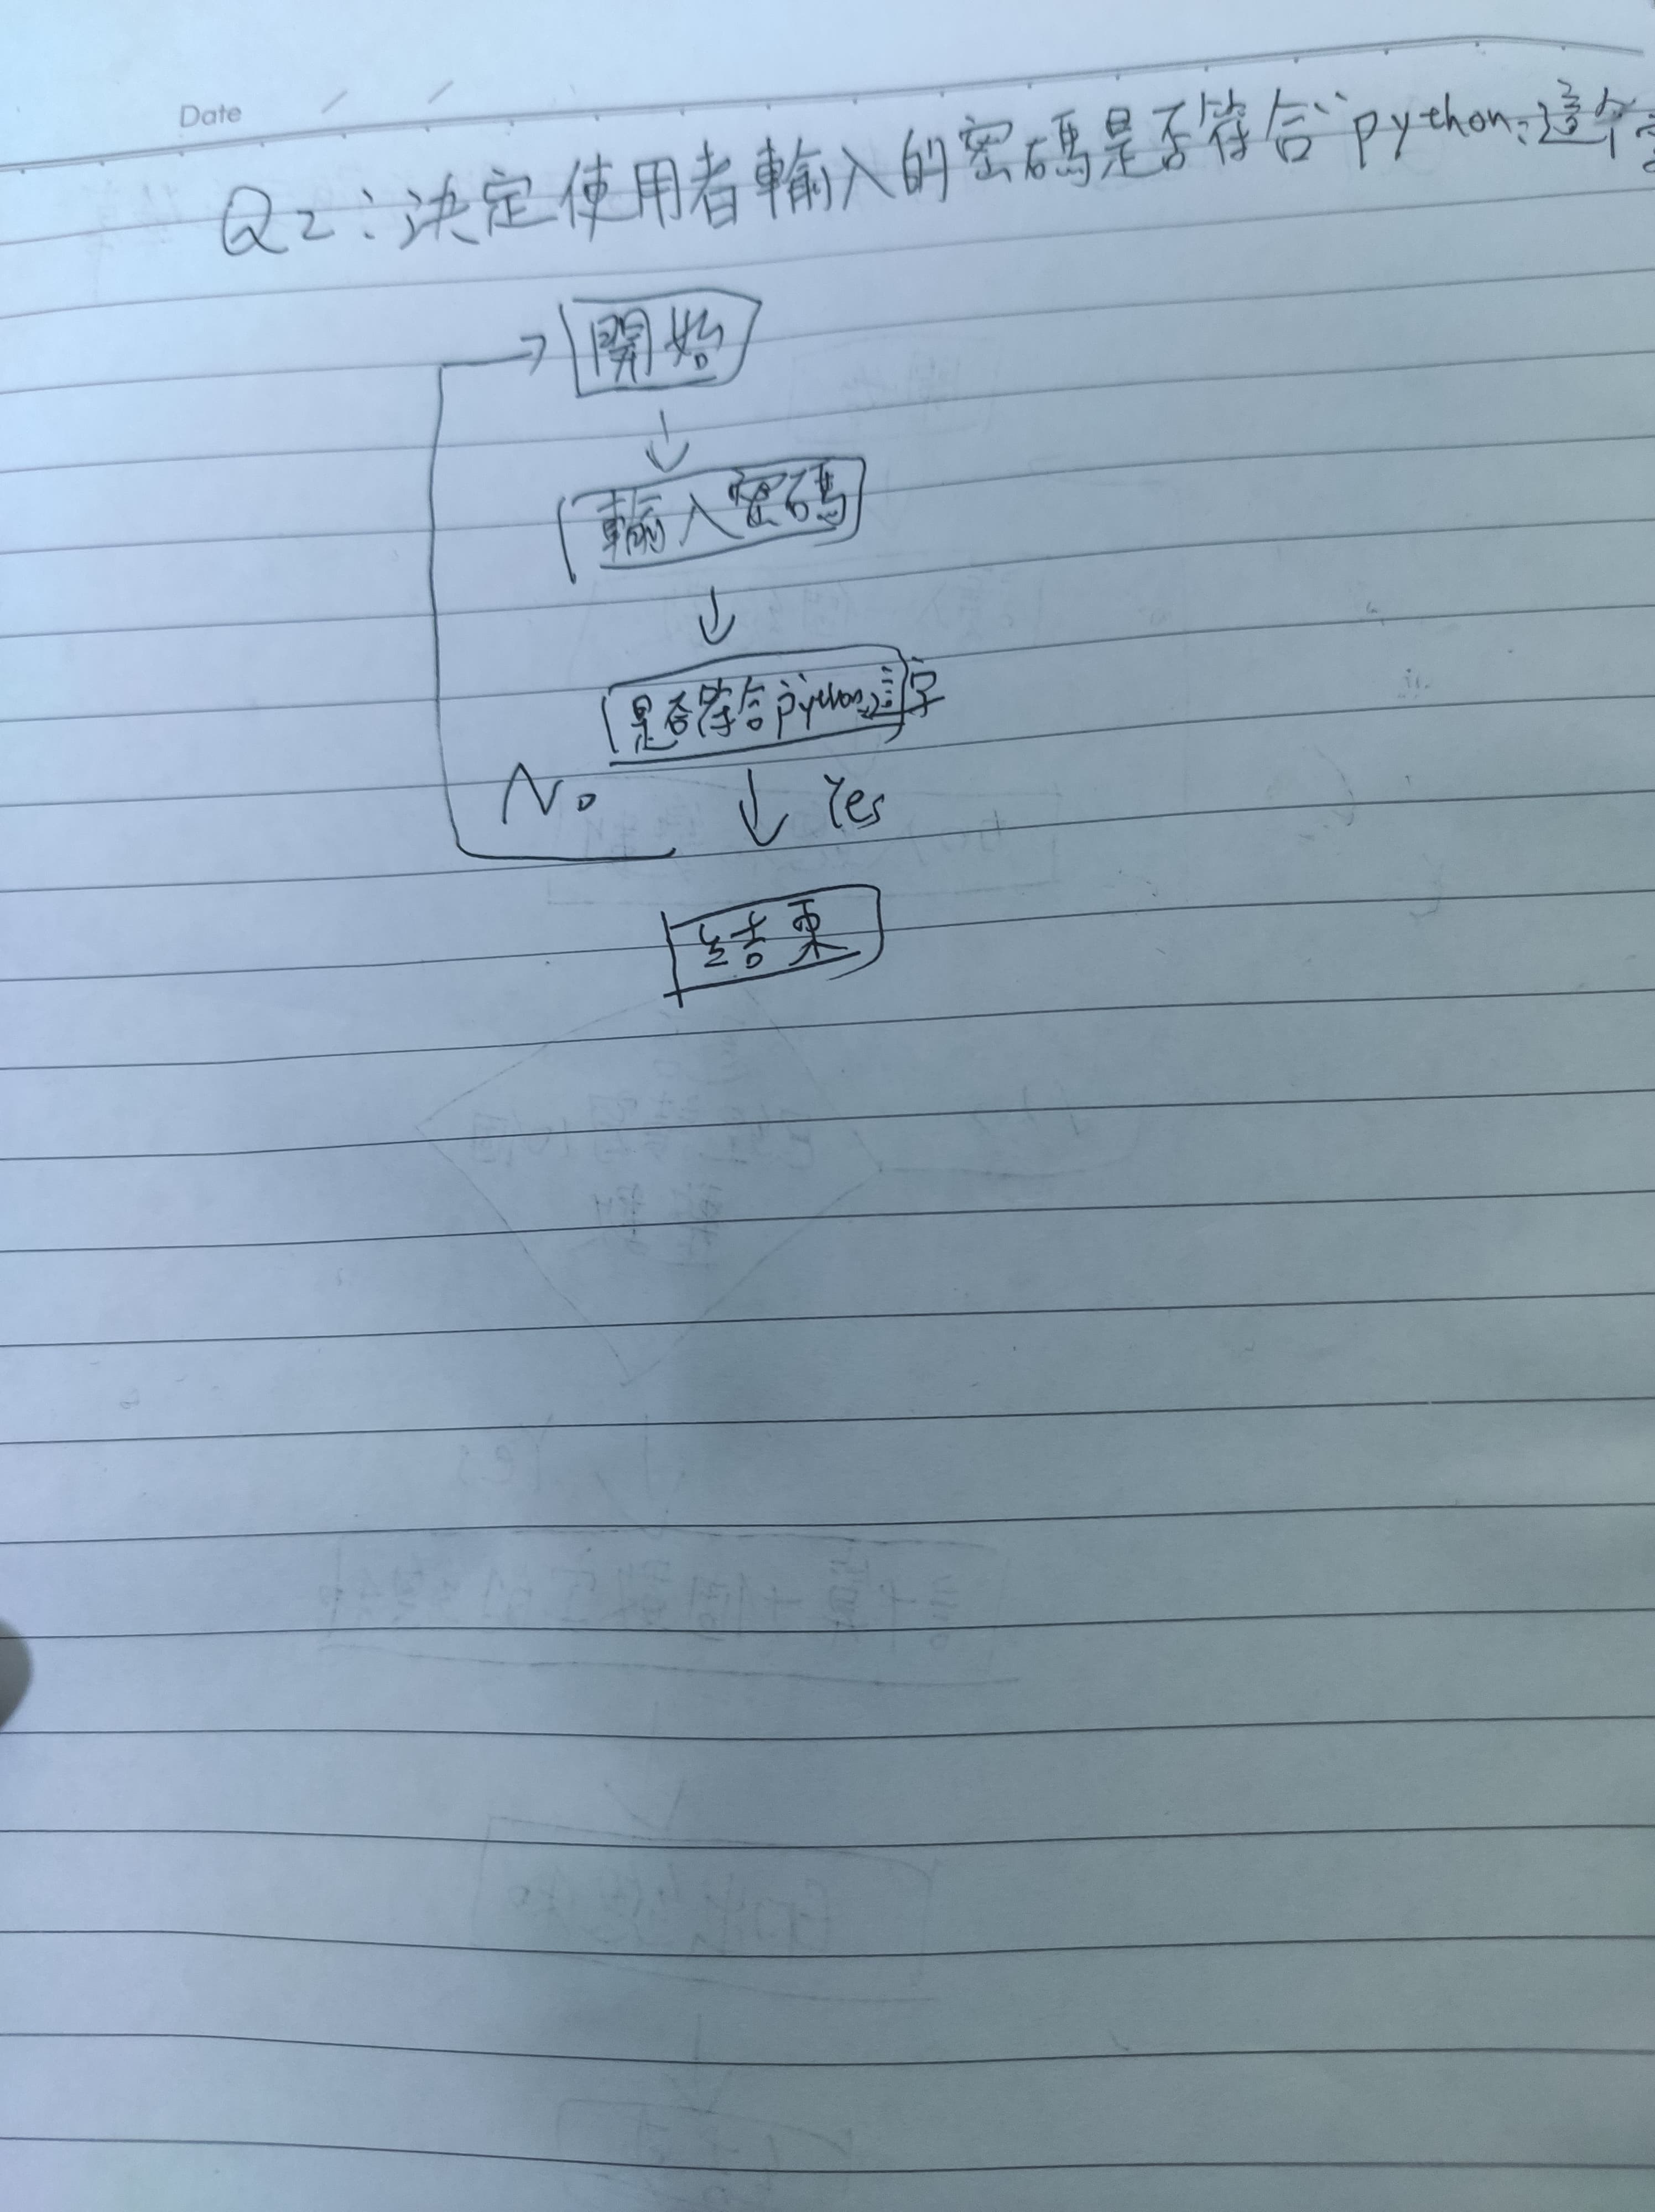 Date / /
Q2:決定使用者輸入的密碼是否符合"python"這个
開始
輸入密碼
是否符合python這字
No
Yes
結束